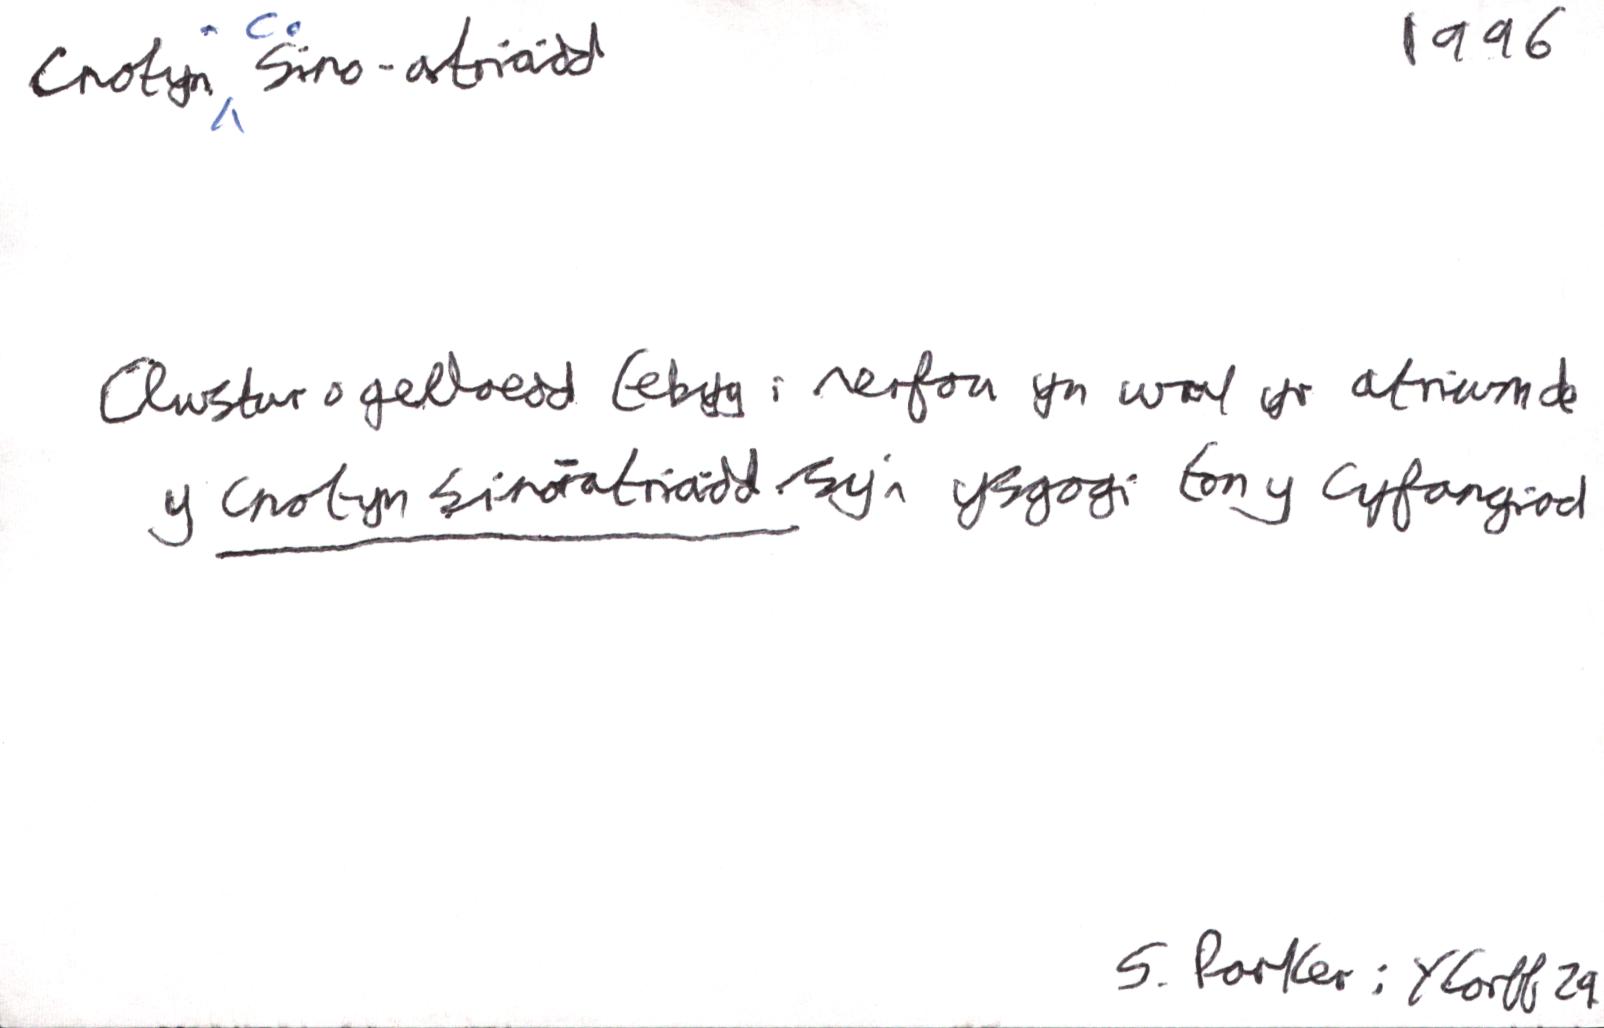 Cnotyn Sino-atriaidd 1996
Clwstwr o gelloedd tebyg i nerfau yn wal yr atriwm de
y cnotyn sino-atriaidd sy'n ysgogi ton y cyfangiad
S. Parker: Y Corff 29